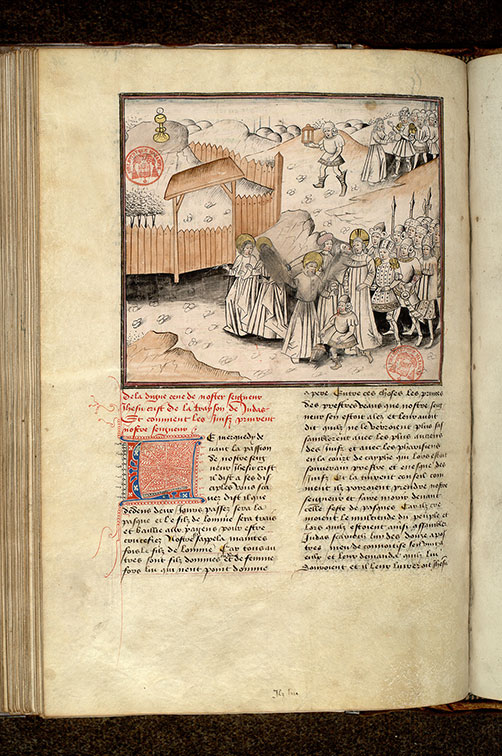 De la digne cene de nostre seigneur
Jhesucrist de la trayson de Judas
Et comment les Juifz prinrent
nostre seigneur
E mercredy de
uant la passion
de nostre sein
neur Jhesucrist
il dist a ses di
ciples vous sa
uez dist il que
dedens deux jours passez sera la
pasque et le filz de lomme sera trais
et baille aux payens pour estre
crucefiez Nostre sappela maintes
fois le filz de lomme Car
tres sont filz dommes et de femme
fors lui qui neut point domme
a pere Entre ces choses les princes
des prestres veans que nostre sei
neur sen estoit alez et leur auoit
dit quilz ne le verroient plus sas
samblerent auec les plus anciens
des Juifz et auec les pharisiens
en la court de cayphe qui lors estoit
souuerain prestre et euesque des
Juifz Et la tinrent conseil com
ment ilz porroient prendre nostre
seigneur et faire morir deuant
celle feste de pasques Car ilz cre
moient le multitude du peuple et
lors quilz estoient ainsi assamblez
Judas scarioth lun des douze apos
tres
eulx et leur demanda quilz lui
donroient et il leur liureroit Jhesu